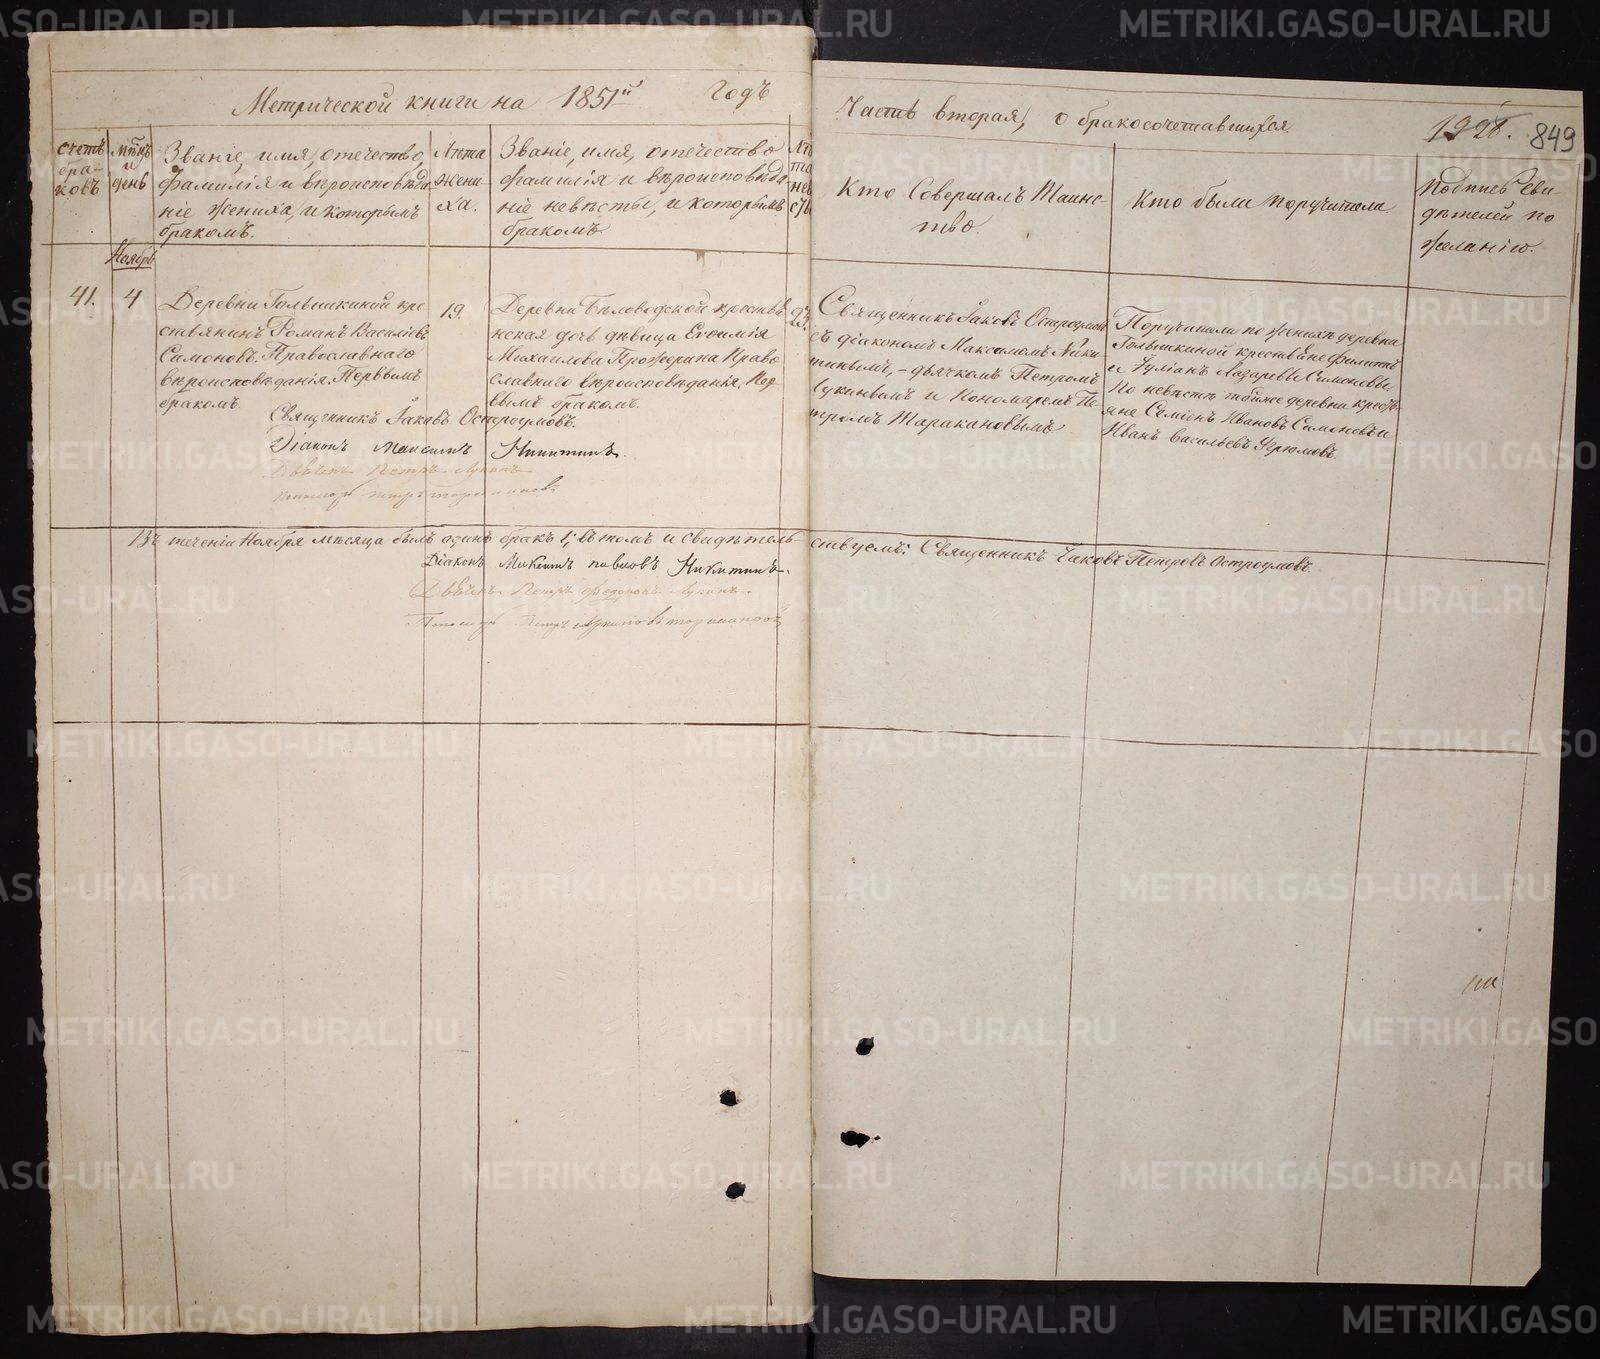 Метрической книги на 1851й Годъ
Часть вторая, о бракосочетавшихся.
849
счетъ бра-ковъ
мѣсяцъ и день
Званіе, имя, отечество,
фамилія и вѣроисповѣда
ніе жениха, и которымъ
бракомъ.
Лѣта
жени-
ха.
Званіе, имя, отечество
фамилія и вѣроисповѣда
ніе невѣсты, и которымъ
бракомъ
Лѣ
та
нев
сты
Кто Совершалъ Таинс-
тво.
Кто были поручители
Подпись сви
дѣтелей по
желанію.
Ноябрь
41.
4
Деревни Голышкиной кре
стьянинъ Романъ Василіевъ
Симоновъ, Православнаго
вѣроисповѣданія, Первымъ
бракомъ.
19.
Деревни Бѣловодской крестья
нская дочь дѣвица Евфимія
Михаилова Прожерина Право
славнаго вѣроисповѣданья, Пер
вымъ бракомъ.
23.
Священникъ Іаковъ Остроумовъ
съ діакономъ Максимомъ Ники
тинымъ, - дьячкомъ Петромъ
Лукинымъ и Пономаремъ Пе
тромъ Таракановымъ
Поручители по женихѣ деревни
Голышкиной крестьяне Филиппъ
и Іуліанъ Лазаревы Симоновы.
По невѣстѣ тойже деревни кресть
яне Семіонъ Ивановъ Симоновъ и
Иванъ Васильевъ
Священникъ Іаковъ Остроумовъ.
Діаконъ Максимъ Никитинъ.
Дьячекъ Петръ Лукинъ
пономарь петръ таракановъ
Въ теченіи Ноября мѣсяца былъ одинъ бракъ 1; въ томъ и свидѣтель
ствуемъ: Священникъ Іаковъ Петровъ Остроумовъ.
Діаконъ Максимъ павловъ Никитинъ.
Дьячекъ Петръ Федоровъ Лукинъ
Пономарь Петръ таракановъ